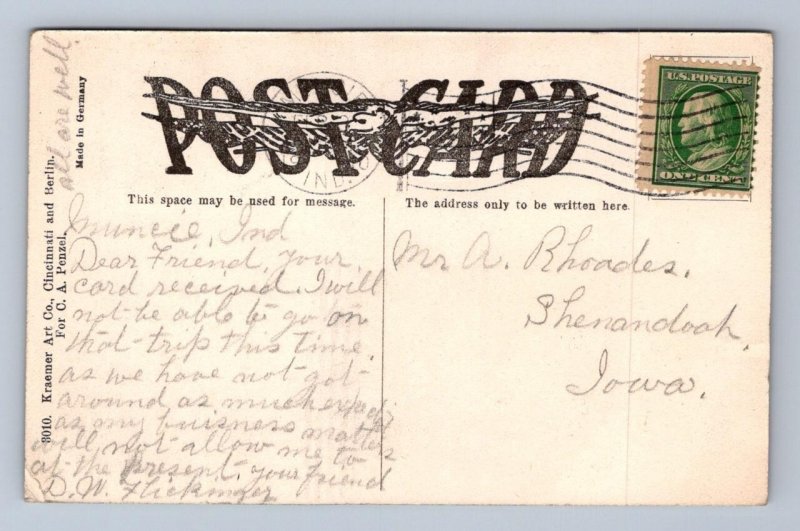 POST CARD
U.S. POSTAGE
ONE CENT
IND.
This space may be used for message.
The address only to be written here.
All are well.
Made in Germany
8010. Kraemer Art Co., Cincinnati and Berlin.
For C. A. Penzel.
Muncie, Ind
Dear Friend, your
card received. I will
not be able to go on
that trip this time
as we have not got
around as much
as my buisness matters
will not allow me to
at the present. your friend
D. W. Flickinger
Mr A. Rhoades.
Shenandoah,
Iowa.